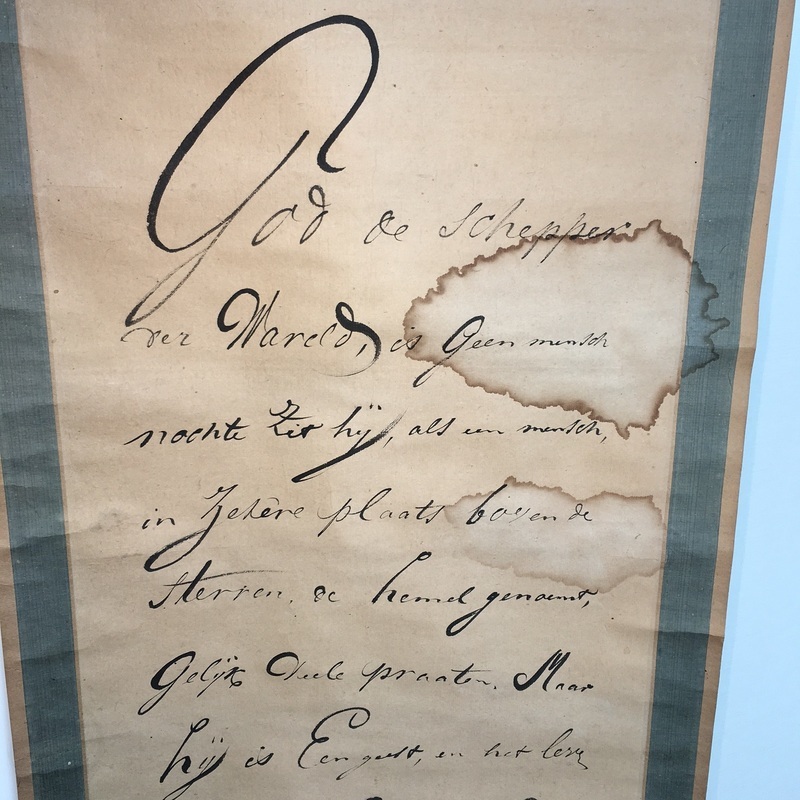 God de schepper
der Wareld, is Geen mensch
nochte Zit hÿ, als een mensch,
in Zekere plaats boven de
sterren, de hemel genoemt,
Gelÿk Veele praaten. Maar
hÿ is Een geest, en het